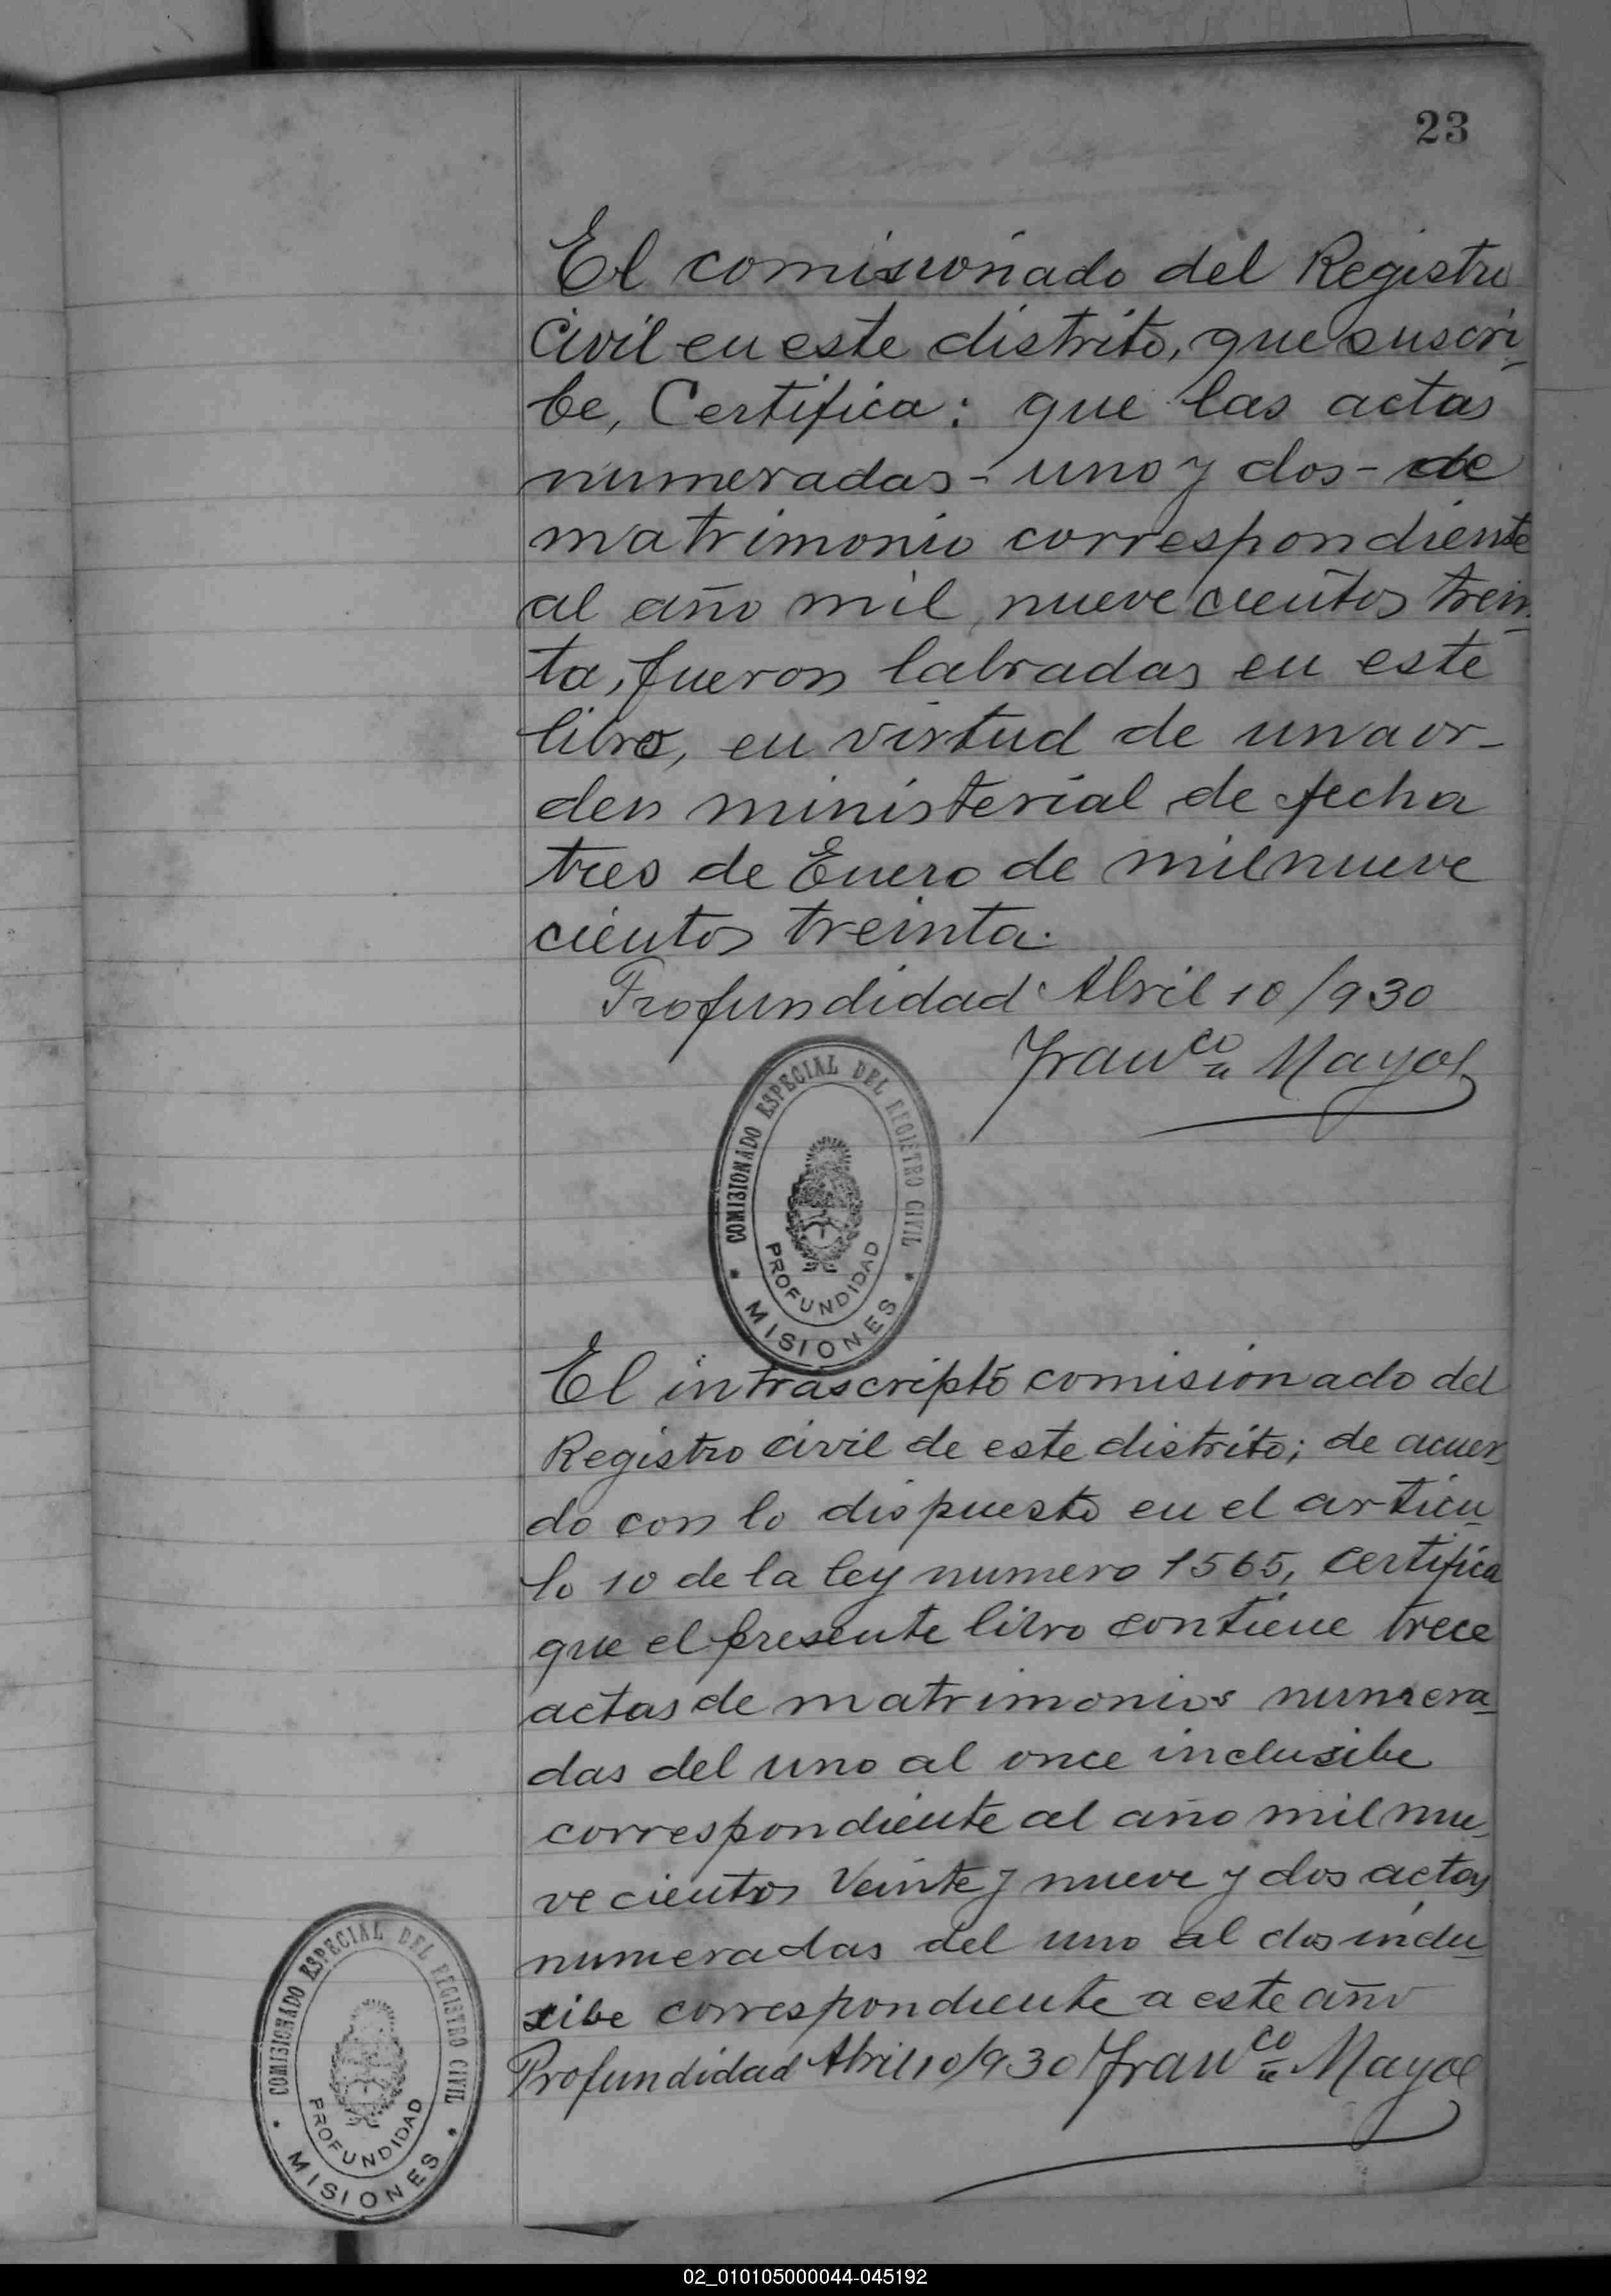 23
El comisionado del Registro
Civil en este distrito, que suscri
be, Certifica: que las actas
numeradas - uno y dos - de
matrimonio correspondiente
al año mil nueve cientos trein
ta, fueron labradas en este
libro, en virtud de una or-
den ministerial de fecha
tres de Enero de mil nueve
cientos treinta.
Profundidad Abril 10/930
Franco Mayol
COMISIONADO ESPECIAL DEL REGISTRO CIVIL
PROFUNDIDAD
* MISIONES *
El intrascripto comisionado del
Registro civil de este distrito; de acuer
do con lo dispuesto en el articu
lo 10 de la ley numero 1565, certifica
que el presente libro contiene trece
actas de matrimonios numera
das del uno al once inclusibe
correspondiente al año mil nue
ve cientos Veinte y nueve y dos actas
numeradas del uno al dos inclu
sibe correspondiente a este año
Profundidad Abril 10/930 Franco Mayol
COMISIONADO ESPECIAL DEL REGISTRO CIVIL
PROFUNDIDAD
* MISIONES *
02_010105000044-045192